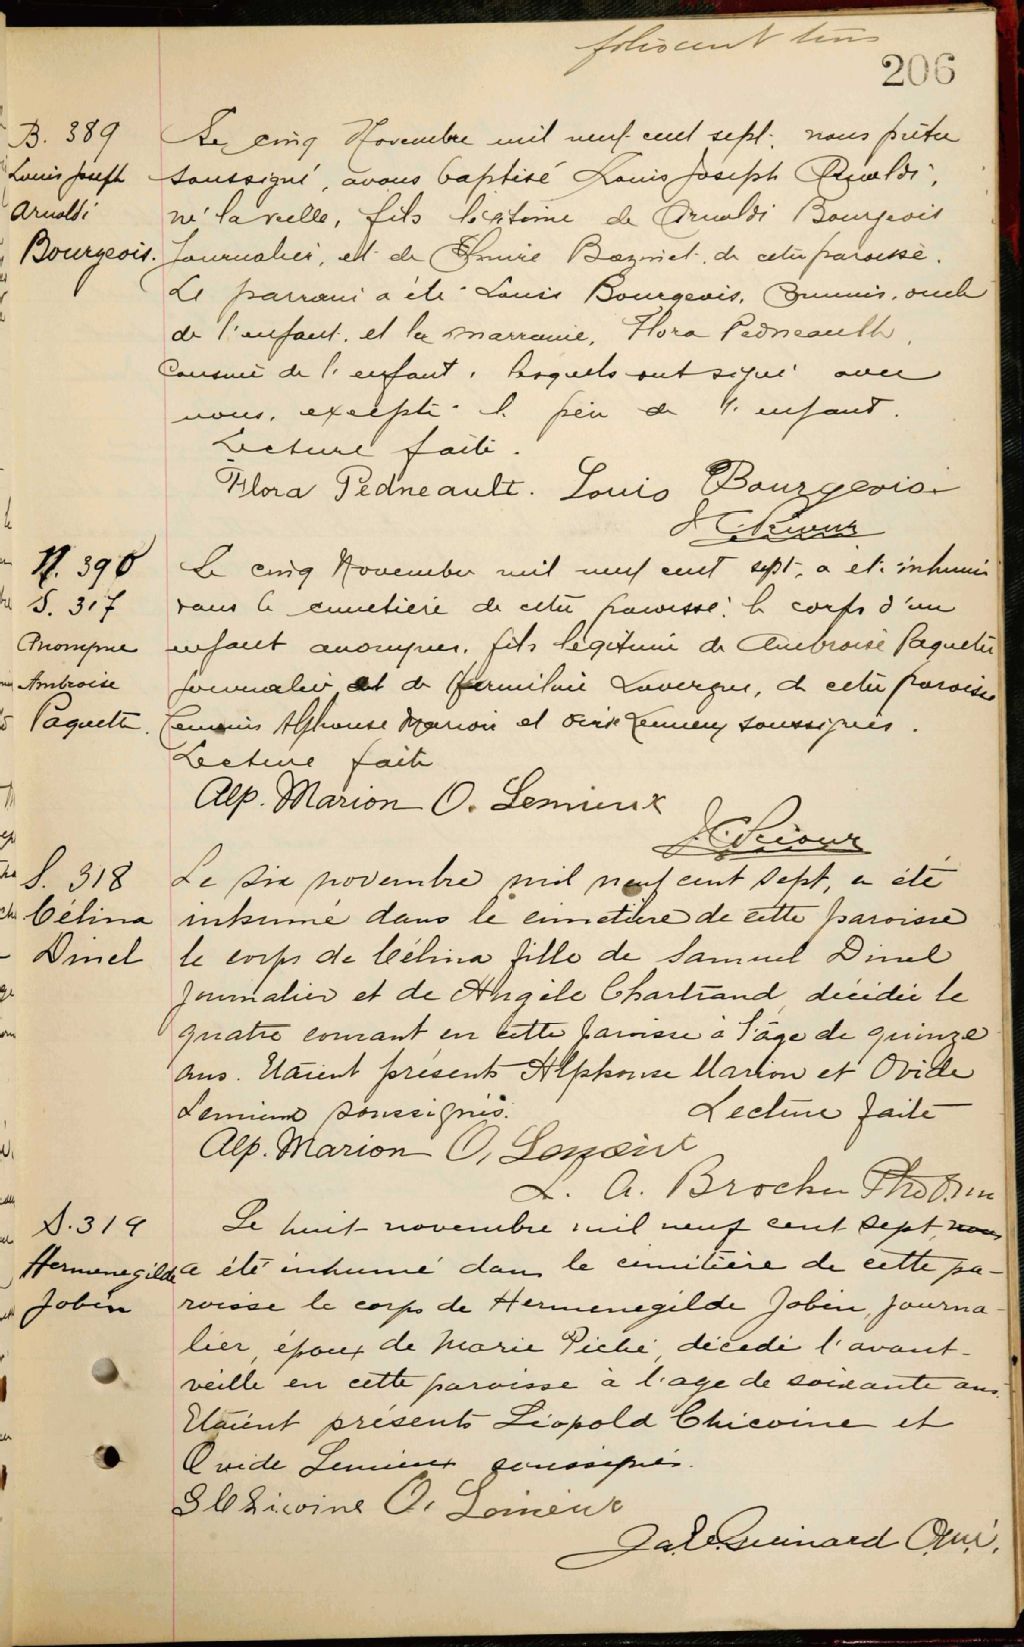 206
B. 389
Louis Joseph
Arnoldi
Bourgeois.
Le cinq Novembre mil neuf cent sept, nous prêtre
soussigné, avons baptisé Louis Joseph Arnoldi,
né la veille, fils légitime de Arnoldi Bourgeois
journalier, et de de cette paroisse.
Le parrain a été Louis Bourgeois, commis, oncle
de l'enfant, et la marraine, Flora Pedneault,
cousine de l'enfant, lesquels ont signé avec
nous, excepté le père de l'enfant.
Lecture faite.
Flora Pedneault. Louis Bourgeois
N. 390
S. 317
Anonyme
Ambroise
Paquette.
Le cinq November mil neuf cent sept, a été inhumé
dans le cimetière de cette paroisse, le corps d'un
enfant anonyme, fils légitime de Ambroise Paquette
journalier et de Lavergne, de cette paroisse
Témoins Alphonse Marion et Lemieux soussignés.
Lecture faite
Alp. Marion O. Lemieux
S. 318
Célina
Dinel
Le six novembre mil neuf cent sept, a été
inhumé dans le cimetière de cette paroisse
le corps de Célina fille de Samuel Dinel
journalier et de Angèle Chartrand, décédée le
quatre courant en cette paroisse à l'âge de quinze
ans. Etaient présents Alphonse Marion et Ovide
Lemieux soussignés. Lecture faite
Alp. Marion O. Lemieux
L. A.
S. 319
Hermenegilde
Jobin
Le huit novembre mil neuf cent sept, nous
a été inhumé dans le cimitière de cette pa-
roisse le corps de Hermenegilde Jobin, journa-
lier, époux de Marie Piché, décédé l'avant-
veille en cette paroisse à l'age de soixante ans.
Etaient présents Léopold Chicoine et
Ovide Lemieux soussignés.
Chicoine O. Lemieux